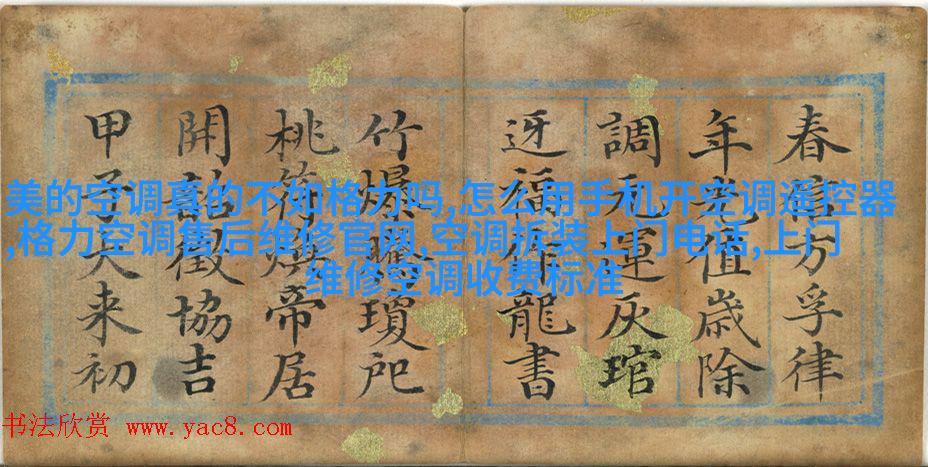 春信方孚律
年光值歲除
調元運灰琯
迓福作龍書
竹爆瓊
桃符煥帝居
開韶徵協吉
甲子大來初
美的空调真的不如格力吗,怎么用手机开空调遥控器
,格力空调售后维修官网,空调拆装上门电话,上门
维修空调收费标准
书法欣赏 www.yac8.com